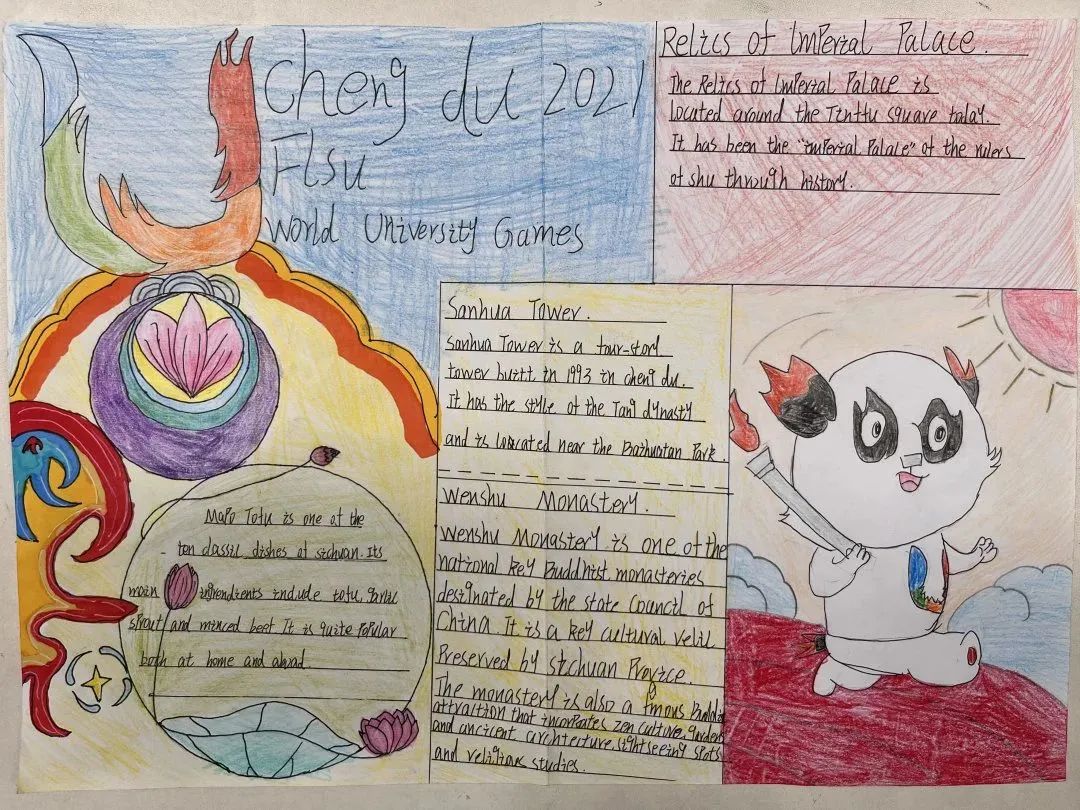 Cheng du 2021
FISU
World University Games
Relics of Imperial Palace.
The Relics of Imperial Palace is
Located around the Tinttu square today.
It has been the "imperial Palace" of the rulers
of shu through history.
Sanhua Tower.
Sanhua Tower is a four-story
tower buitt in 1993 in cheng du.
It has the style of the Tang dynasty
and is located near the Baihuatan Park.
Wenshu Monastery.
Wenshu Monastery is one of the
national key Buddhist monasteries
designated by the state Council of
China. It is a key cultural relic
Preserved by sichuan Provice.
The monastery is also a famous
attraction that incorpoates zen culture, gardens
and ancient architecture, sightseeing spots
and religious studies.
Mapo Tofu is one of the
ten classic dishes of sichuan. Its
main ingrendients include tofu, garlic
sprout and minced beef. It is quite Popular
both at home and abroad.